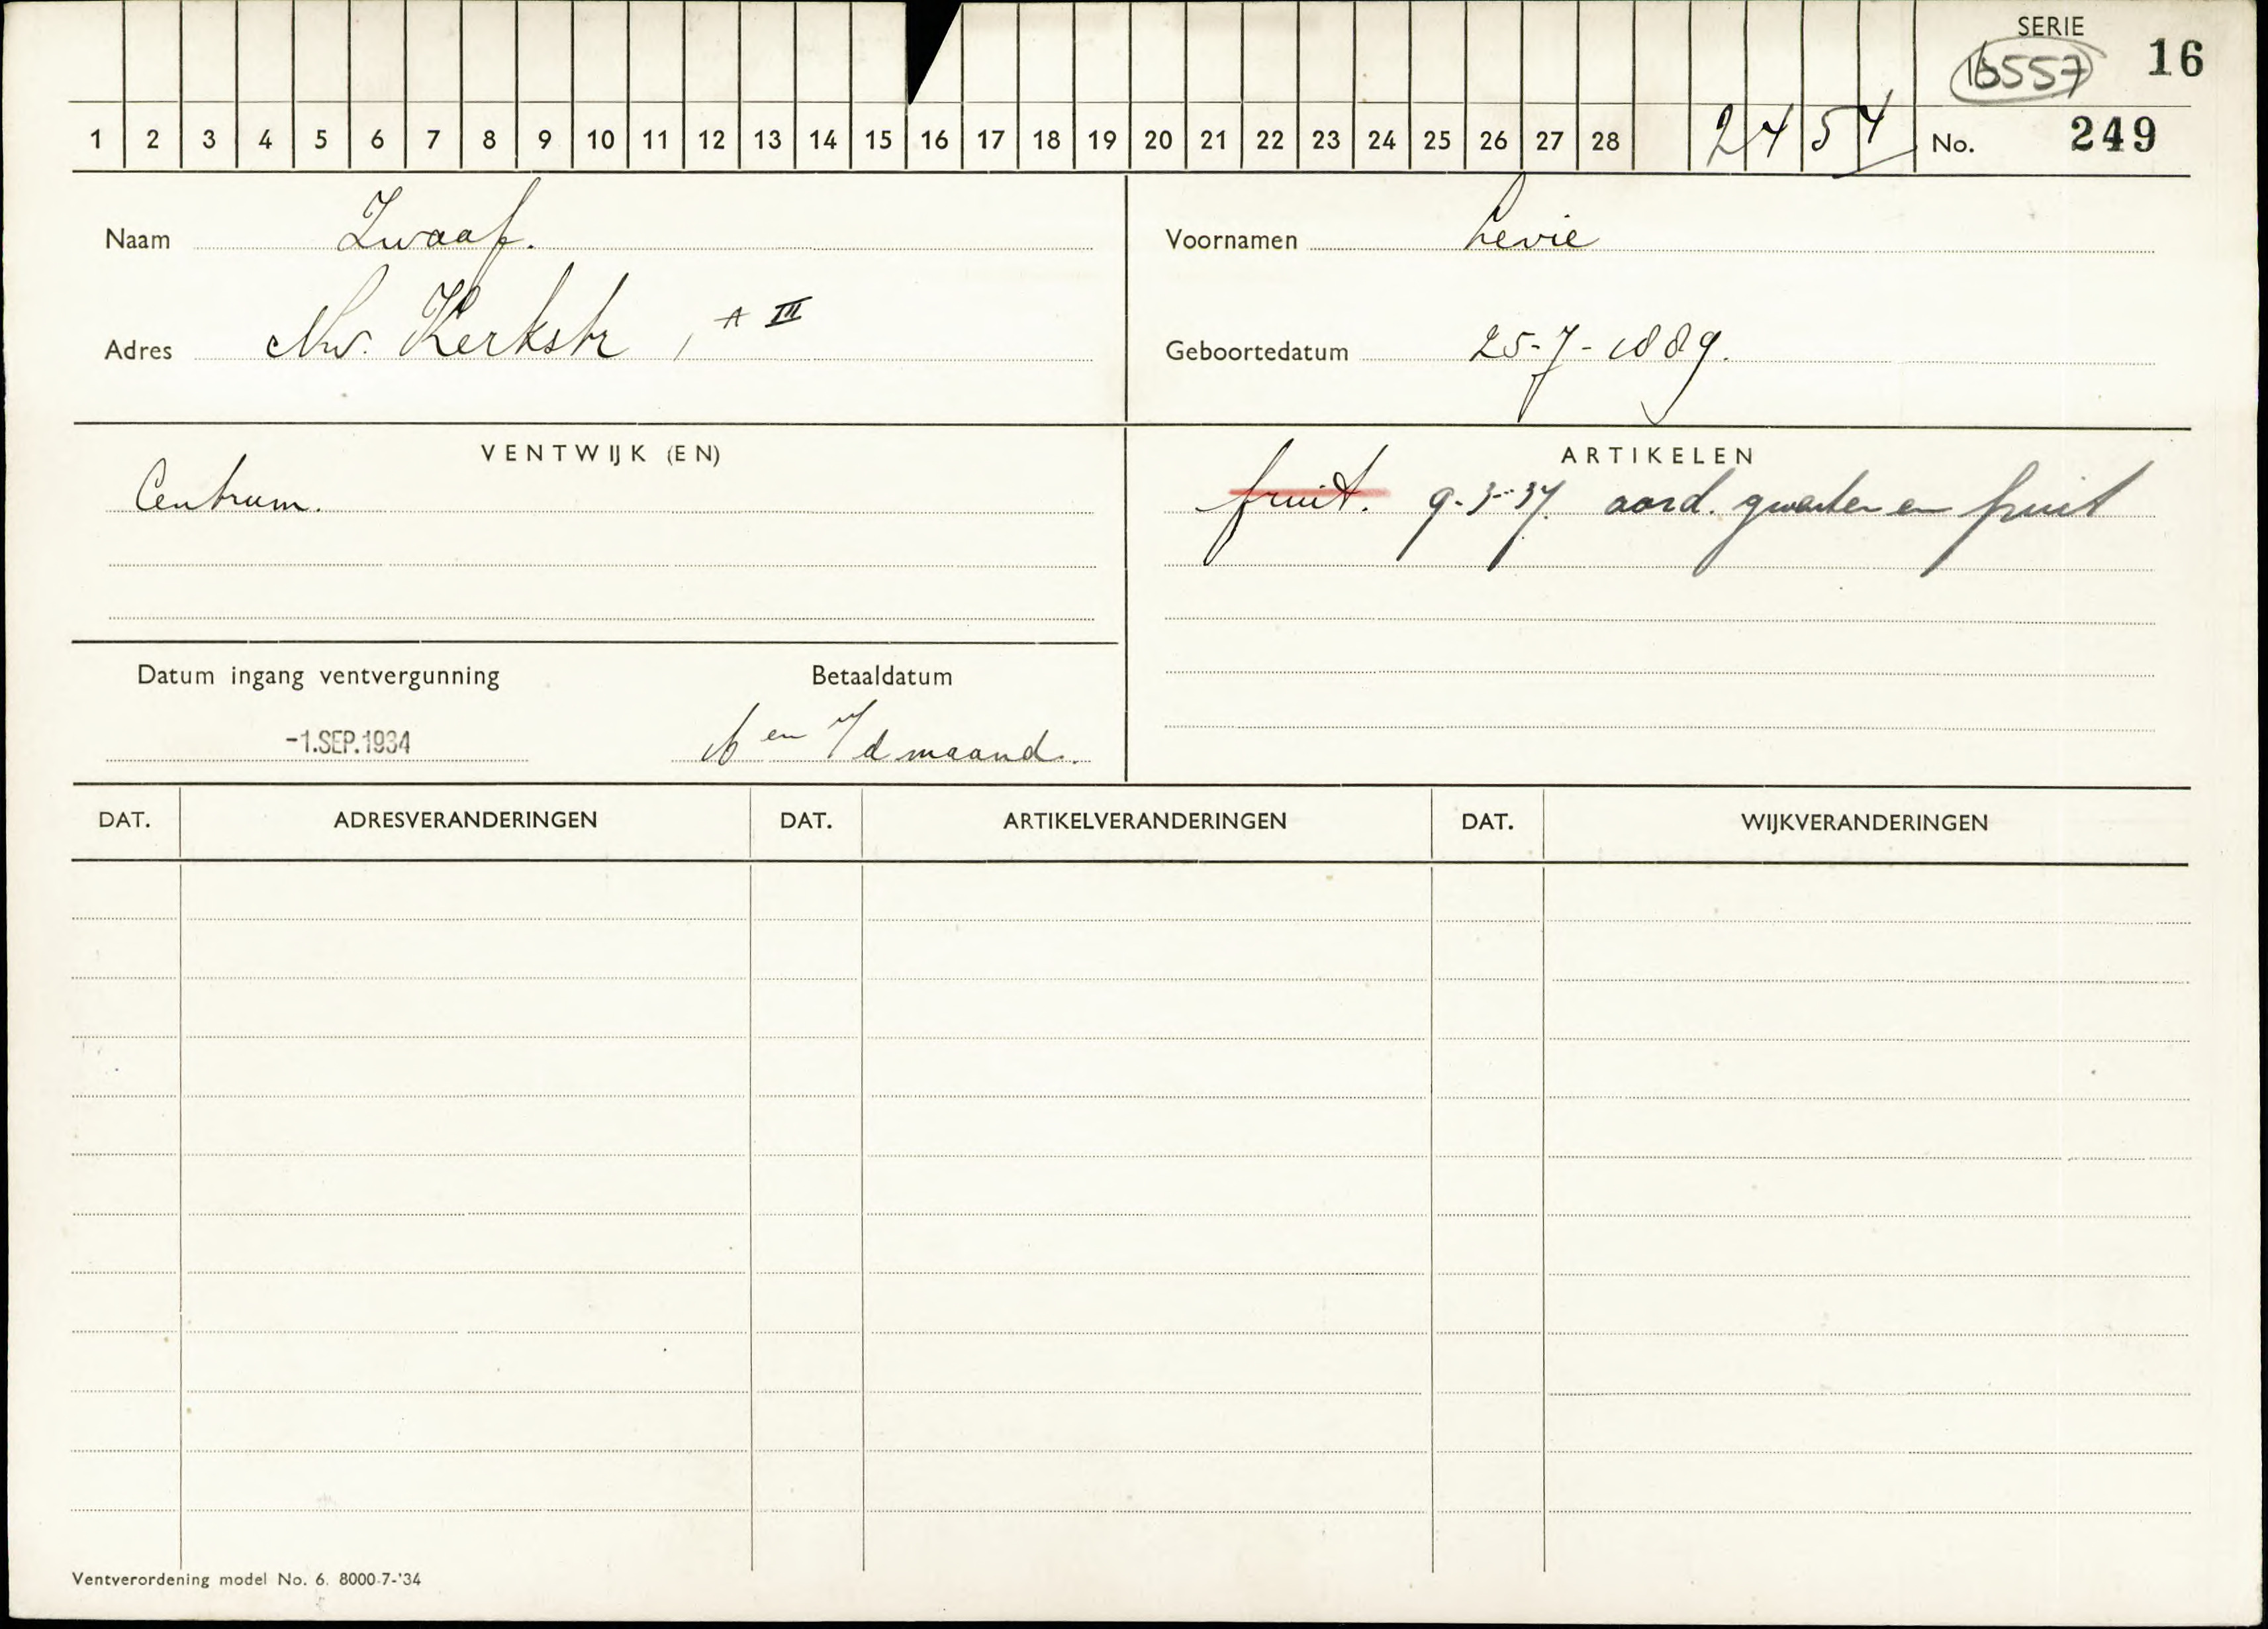 SERIE
16557 16
1 2 3 4 5 6 7 8 9 10 11 12 13 14 15 16 17 18 19 20 21 22 23 24 25 26 27 28 2454 No. 249
Naam Zwaaf. Voornamen Levie
Adres Nw. Kerkstr 1 A III Geboortedatum 25-7-1889.
VENTWIJK (EN) ARTIKELEN
Centrum. fruit. 9-3-37. aard. groenten en fruit
Datum ingang ventvergunning Betaaldatum
-1.SEP.1934 en 7/d maand.
DAT. ADRESVERANDERINGEN DAT. ARTIKELVERANDERINGEN DAT. WIJKVERANDERINGEN
Ventverordening model No. 6. 8000-7-'34